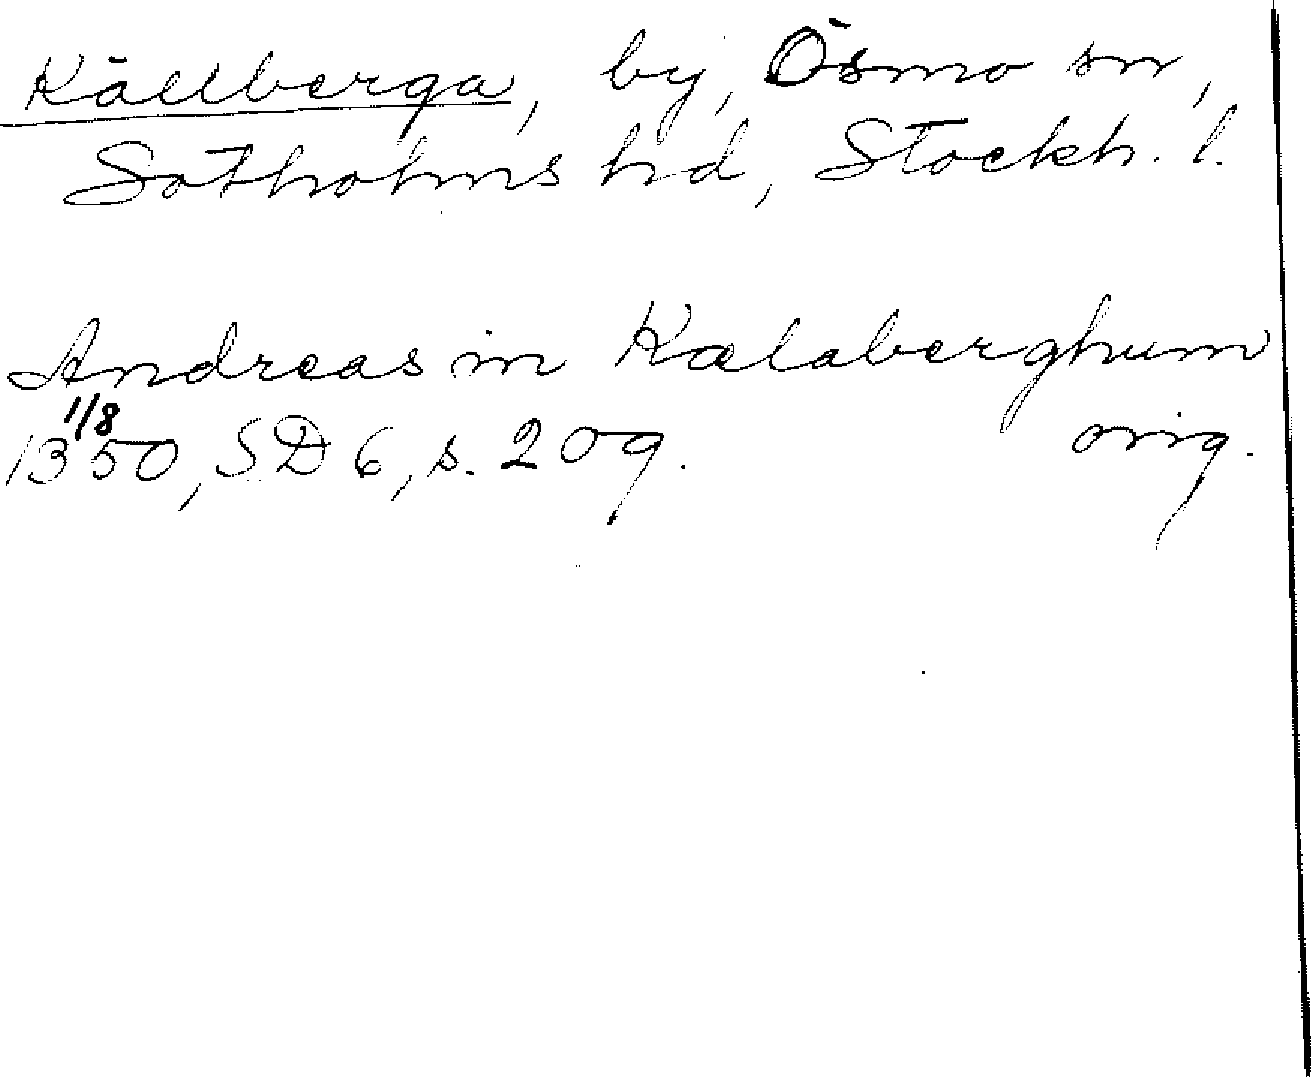 Källberga, by, Ösmo sn,
Sotholms hd, Stockh. l.
Andreas in Kælaberghum
1350, 1/8 SD 6, s. 209. orig.